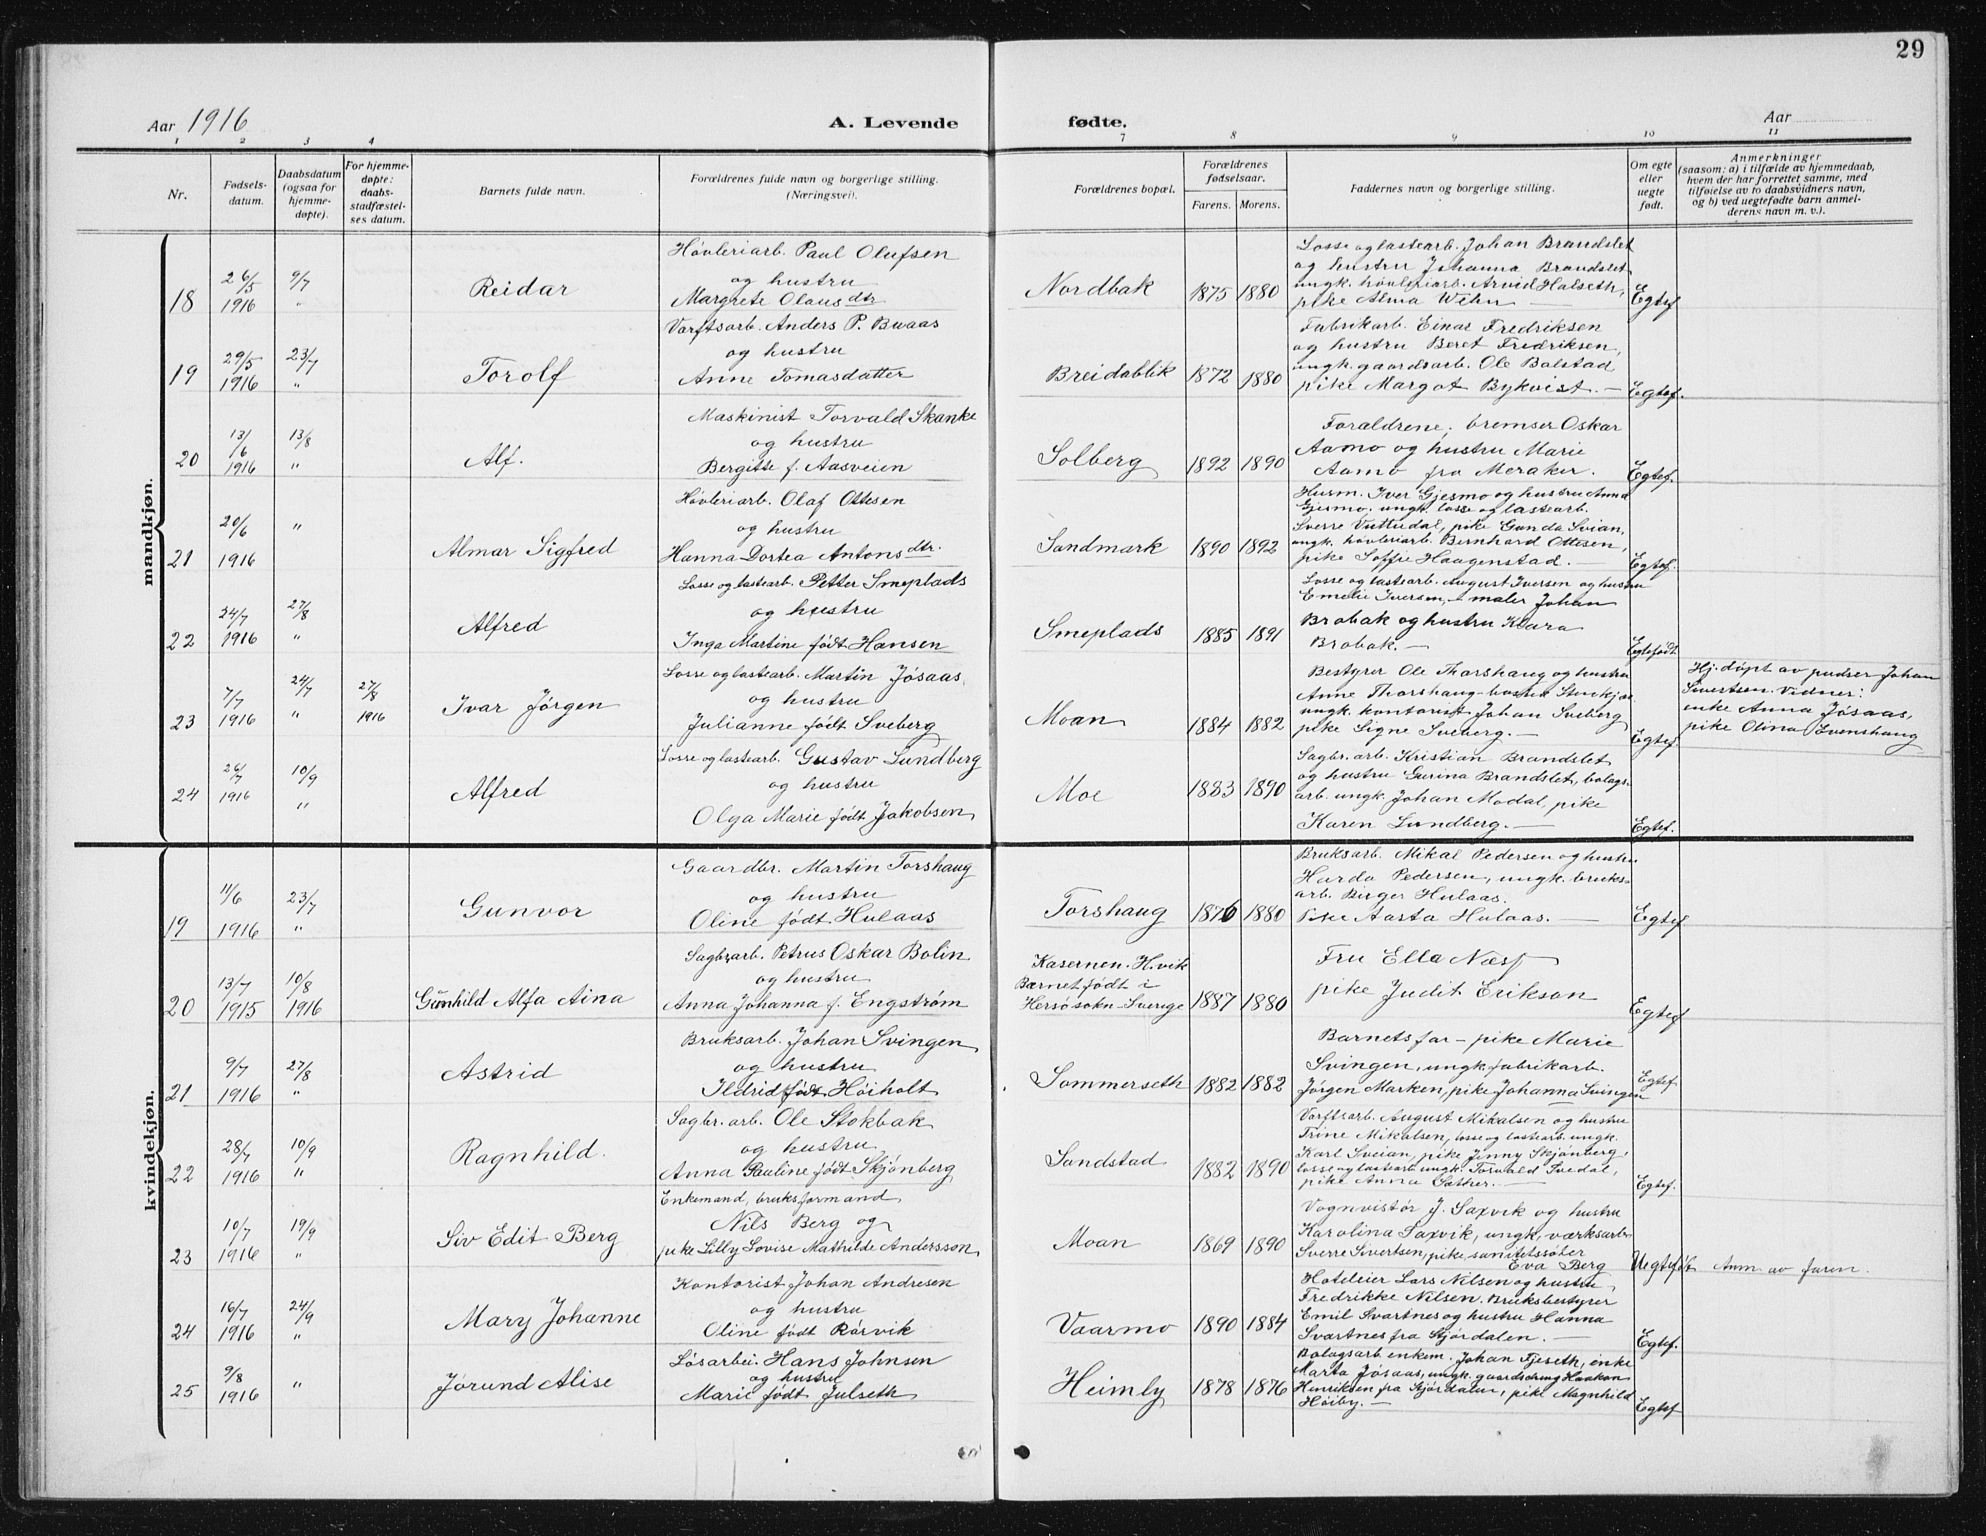 29
Aar 1916
A. Levende
fødte.
Aar
1 2 3 4 7 8 9 10 11
Nr.
Fødsels-
datum.
Daabsdatum
(ogsaa for
hjemme-
døpte).
For hjemme-
døpte:
daabs-
stadfæstel-
ses datum.
Barnets fulde navn.
Forældrenes fulde navn og borgerlige stilling.
(Næringsvei).
Forældrenes bopæl.
Forældrenes
fødselsaar.
Farens. Morens.
Faddernes navn og borgerlige stilling.
Om egte
eller
uegte
født.
Anmerkninger
(saasom: a) i tilfælde av hjemmedaab,
hvem der har forrettet samme, med
tilføielse av to daabsvidners navn,
og b) ved uegtefødte barn anmel-
derens navn m. v.).
mandkjøn.
18
26/5
1916
9/7
"
Reidar
Høvleriarb. Paul Olufsen
og hustru
Margrete Olausdtr
Nordbak
1875 1880
Losse og lastearb. Johan Brandslet
og hustru Johanna Brandslet
ungk. høvleriarb. Arvid Halseth,
pike Alma Wihn —
Egtef.
19
29/5
1916
23/7
"
Torolf
Varftsarb. Anders P. Buaas
og hustru
Anne Tomasdatter
Breidablik
1872 1880
Fabrikarb. Einar Fredriksen
og hustru Beret Fredriksen,
ungk. gaardsarb. Ole Bolstad
pike Margot Bykvist. —
Egtef.
20
13/
16
1916
13/8
"
Alf.
Maskinist Torvald Skanke
og hustru
Bergitte f. Aasveien
Solberg
1892 1890
Foraldrene, bremser Oskar
Aamo og hustru Marie
Aamo fra Meraker.
Egtef.
21
20/6
1916
"
Almar Sigfred
Høvleriarb. Olaf Ottesen
og hustru
Hanna Dortea Antonsdtr.
Sandmark
1890 1892
Husm. Iver Gjesmo og hustru Anna
Gjesmo, ungk. losse og lastearb.
Sverre Vuttudal, pike Gunda Svian,
ungk. høvleriarb. Bernhard Ottesen,
pike Soffie Haagenstad. —
Egtef.
22
24/7
1916
27/8
"
Alfred
Losse og lastearb. Petter Smeplads
og hustru
Inga Martine født Hansen
Smeplads
1885 1891
Losse og lastearb. August Iversen og hustru
Emelie Iversen, maler Johan
Brobak og hustru Klara
Brobak. —
Egtefødt
23
7/7
1916
24/7
"
27/8
1916
Ivar Jørgen
Losse og lastearb. Martin Jøsaas
og hustru
Julianne født Sveberg
Moan
1884 1882
Bestyrer Ole Thorshaug og hustru
Anne Thorshaug bosted Stenkjær
ungk. kontorist Johan Sveberg
pike Signe Sveberg. —
Egtef.
Hj. døpt av pudser Johan
Sivertsen. Vidner:
enke Anna Jøsaas,
pike Olina Evenshaug
24
26/7
1916
10/9
"
Alfred
Losse og lastearb. Gustav Lundberg
og hustru
Olga Marie født Jakobsen
Moe
1883 1890
Sagbr. arb. Kristian Brandslet
og hustru Gurina Brandslet, bolags-
arb. ungk. Johan Modal, pike
Karen Lundberg. —
Egtef.
kvindekjøn.
19
11/6
1916
23/7
"
Gunvor
Gaardbr. Martin Torshaug
og hustru
Oline født Hulaas
Torshaug
1876 1880
Bruksarb. Mikal Pedersen og hustru
Harda Pedersen, ungk. bruks-
arb. Birger Hulaas.
Pike Aasta Hulaas. —
Egtef
20
13/7
1915
10/8
1916
Gunhild Alfa Aina
Sagbrarb. Petrus Oskar Bolin
og hustru
Anna Johanna f. Engstrøm
Kasernen. H.vik
Barnet født i
Hersøsokn-Sverige
1887 1880
Fru Ella Næss
pike Judit Erikson
Egtef
21
9/7
1916
27/8
"
Astrid
Bruksarb. Johan Svingen
og hustru
Ildrid født Høiholt
Sommerseth
1882 1882
Barnets far — pike Marie
Svingen, ungk. fabrikarb.
Jørgen Marken, pike Johanna Svingen
Egtef.
22
28/7
1916
10/9
"
Ragnhild.
Sagbr. arb. Ole Stokbak
og hustru
Anna Pauline født Skjønberg
Sandstad
1882 1890
Varftsarb. August Mikalsen og hustru
Trine Mikalsen, losse og lastearb. ungk.
Karl Sveian, pike Jenny Skjønberg,
losse og lastearb. ungk. Torvald Svedal,
pike Anna Sather. —
Egtef.
23
10/7
1916
19/9
"
Siv Edit Berg
Enkemand, bruksformand
Nils Berg og
pike Lilly Lovise Mathilde Andersson
Moan
1869 1890
Vognvistør J. Saxvik og hustru
Karolina Saxvik, ungk. værksarb.
Sverre Sivertsen, pike sanitetssøster
Eva Berg
Uegtefødt
Anm av faren.
24
16/7
1916
24/9
"
Mary Johanne
Kontorist Johan Andresen
og hustru
Oline født Rørvik
Vaarmo
1890 1884
Hoteleier Lars Nilsen og hustru
Fredrikke Nilsen. Bruksbestyrer
Emil Svartnes og hustru Hanna
Svartnes fra Stjørdalen. —
Egtef.
25
9/8
1916
"
Jørund Alise
Løsarbei. Hans Johnsen
og hustru
Marie født Julseth
Heimly
1878 1876
Bolagsarb. enkem. Johan Fjeseth, enke
Marta Jøsaas, ungk. gaardsdreng Haakon
Henriksen fra Stjørdalen, pike Magnhild
Høiby. —
Egtef